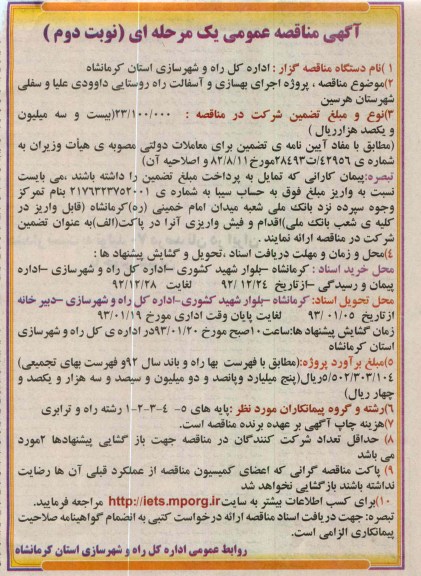 آگهی مناقصه عمومی یک مرحله ای (نوبت دوم )
۱ )نام دستگاه مناقصه گزار : اداره کل راه و شهرسازی استان کرمانشاه
۲)موضوع مناقصه ، پروژه اجرای بهسازی و آسفالت راه روستایی داوودی علیا و سفلی
شهرستان هرسین
۳)نوع و مبلغ تضمین شرکت در مناقصه : ۲۳/۱۰۰/۰۰۰(بیست و سه میلیون
و یکصد هزارریال )
(مطابق با مفاد آیین نامه ی تضمین برای معاملات دولتی مصوبه ی هیأت وزیران به
شماره ی ۴۲۹۵۶/ت۲۸۴۹۳مورخ۸۲/۸/۱۱ و اصلاحیه آن)
تبصره:پیمان کارانی که تمایل به پرداخت مبلغ تضمین را داشته باشند ،می بایست
نسبت به واریز مبلغ فوق به حساب سیبا به شماره ی ۲۱۷۶۴۲۳۷۵۲۰۰۱ بنام تمرکز
وجوه سپرده نزد بانک ملی شعبه میدان امام خمینی (ره)کرمانشاه (قابل واریز در
کلیه ی شعب بانک ملی)اقدام و فیش واریزی آنرا در پاکت(الف)به عنوان تضمین
شرکت در مناقصه ارائه نمایند .
۴)محل و زمان و مهلت دریافت اسناد ،تحویل و گشایش پیشنهاد ها :
محل خرید اسناد : کرمانشاه –بلوار شهید کشوری –اداره کل راه و شهرسازی –اداره
پیمان و رسیدگی –ازتاریخ ۹۲/۱۲/۲۴ لغایت ۹۲/۱۲/۲۸
محل تحویل اسناد: کرمانشاه –بلوار شهید کشوری–اداره کل راه و شهرسازی –دبیر خانه
ازتاریخ ۹۳/۰۱/۰۵ لغایت پایان وقت اداری مورخ ۹۳/۰۱/۱۹
زمان گشایش پیشنهاد ها:ساعت۱۰صبح مورخ ۹۳/۰۱/۲۰در اداره ی کل راه و شهرسازی
استان کرمانشاه
۵)مبلغ برآورد پروژه:(مطابق با فهرست بها راه و باند سال ۹۲و فهرست بهای تجمیعی)
۵/۵۰۲/۳۰۳/۱۰۴ریال(پنج میلیارد وپانصد و دو میلیون و سیصد و سه هزار و یکصد و
چهار ریال)
۶)رشته و گروه پیمانکاران مورد نظر :پایه های ۵- ۴-۳-۲-۱ رشته راه و ترابری
۷)هزینه چاپ آگهی بر عهده برنده مناقصه است.
۸) حداقل تعداد شرکت کنندگان در مناقصه جهت باز گشایی پیشنهادها ۲مورد
می باشد
۹ ) پاکت مناقصه گرانی که اعضای کمیسیون مناقصه از عملکرد قبلی آن ها رضایت
نداشته باشند بازگشایی نخواهد شد
۱۰)برای کسب اطلاعات بیشتر به سایت http://iets.mporg.ir مراجعه فرمایید.
تبصره: جهت دریافت اسناد مناقصه ارائه درخواست کتبی به انضمام گواهینامه صلاحیت
پیمانکاری الزامی است.
روابط عمومی اداره کل راه و شهرسازی استان کرمانشاه